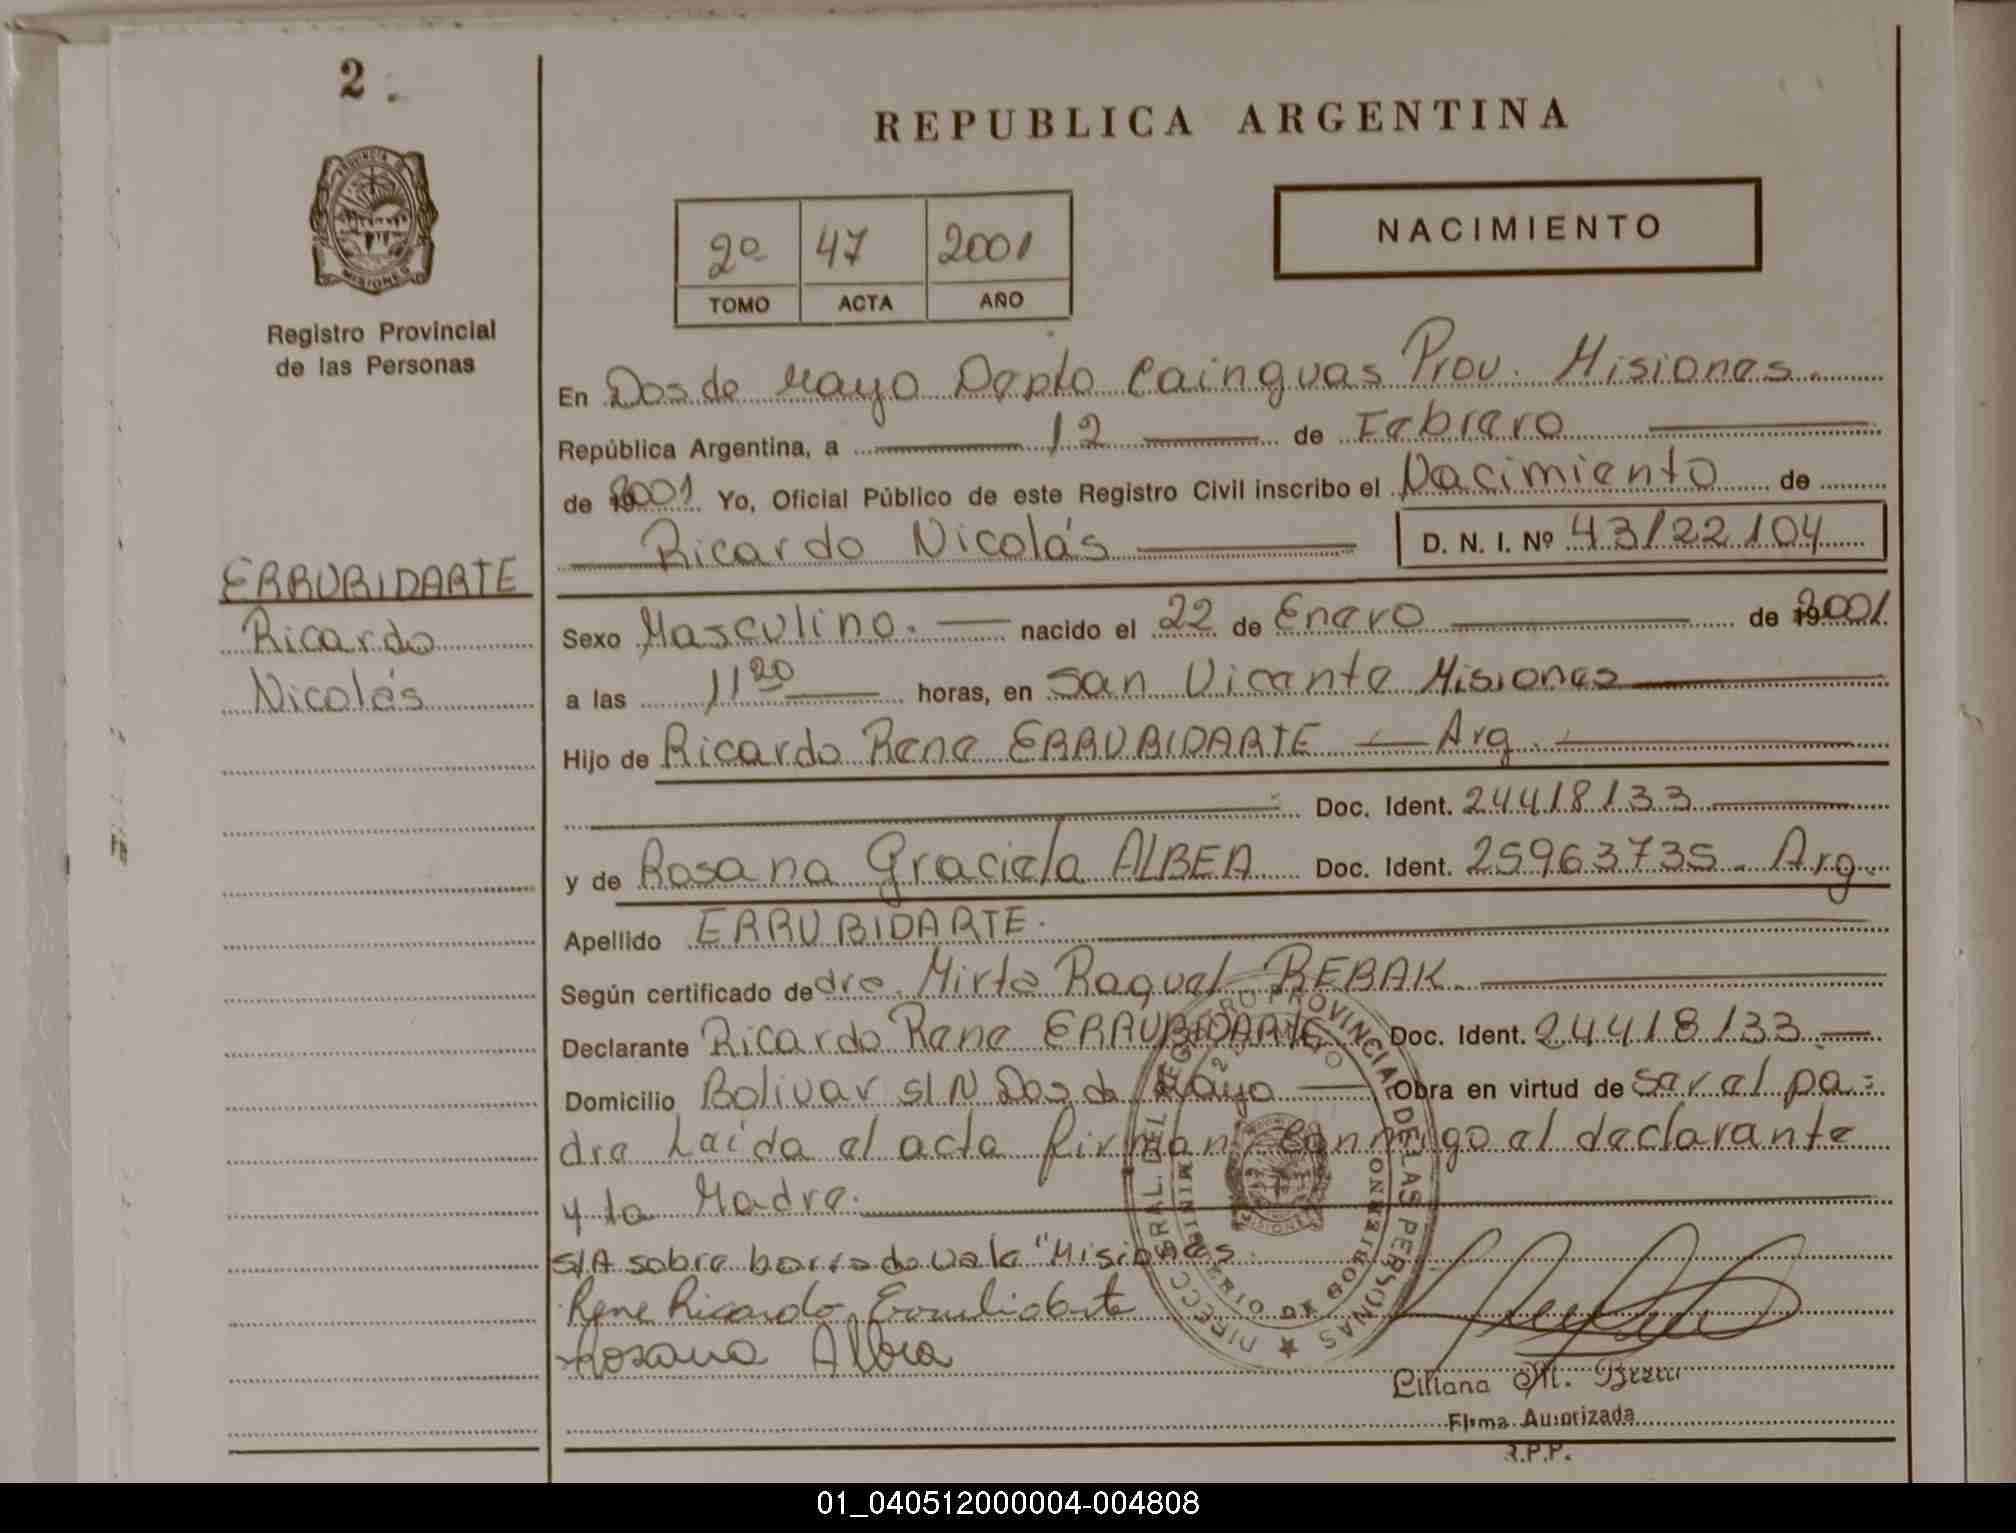 2
REPUBLICA ARGENTINA
PROVINCIA DE
MISIONES
Registro Provincial
de las Personas
2º 47 2001
TOMO ACTA AÑO
NACIMIENTO
En Dos de Mayo Depto Cainguas Prov. Misiones
República Argentina, a 12 de Febrero
de 2001 Yo, Oficial Público de este Registro Civil inscribo el Nacimiento de
Ricardo Nicolás D. N. I. Nº 43122104
ERRUBIDARTE
Ricardo
Nicolás
Sexo Masculino. nacido el 22 de Enero de 2001
a las 11 20 horas, en San Vicente Misiones
Hijo de Ricardo Rene ERRUBIDARTE Arg.
Doc. Ident. 24418133
y de Rosana Graciela ALBEA Doc. Ident. 25963735. Arg.
Apellido ERRUBIDARTE.
Según certificado de dra. Mirta Raquel REBAK.
Declarante Ricardo Rene ERRUBIDARTE Doc. Ident. 24418133
Domicilio Bolivar S/N Dos de Mayo Obra en virtud de ser el pa=
dre Laída el acta firman conmigo el declarante
y la Madre.
S/A sobre borrado vale "Misiones
Rene Ricardo Errubidarte
Rosana Albea
DIRECC. GRAL. DEL REGISTRO PROVINCIAL DE LAS PERSONAS
MINISTERIO DE GOBIERNO
MISIONES
Liliana M.
Firma Autorizada
R.P.P.
01_040512000004-004808